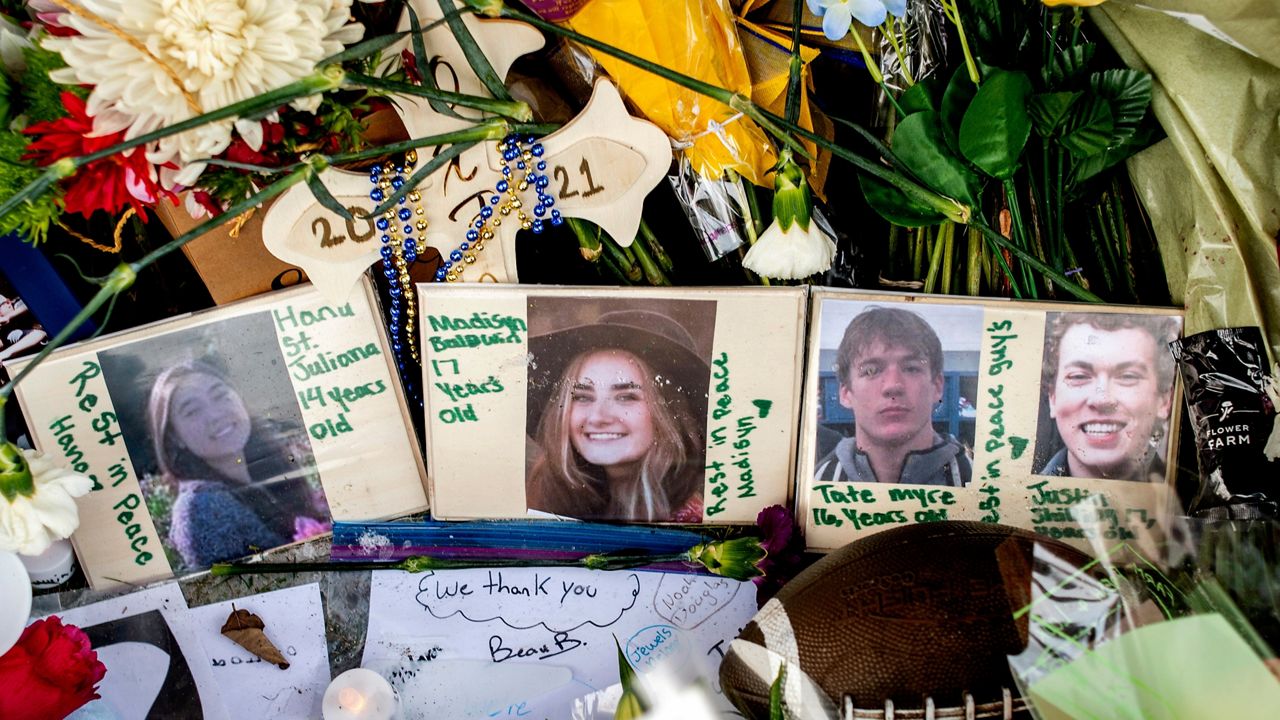 20
21
Hana
St.
Juliana
14 years
old
Rest in Peace
Hana
Madisyn
Baldwin
17
years
old
Rest in Peace
Madisyn
Tate myre
16, years old
Rest in peace guys
Justin
Shilling 17,
years old
FLOWER
FARM
We thank you
Beau B.
Noah
Douglas
Jewels